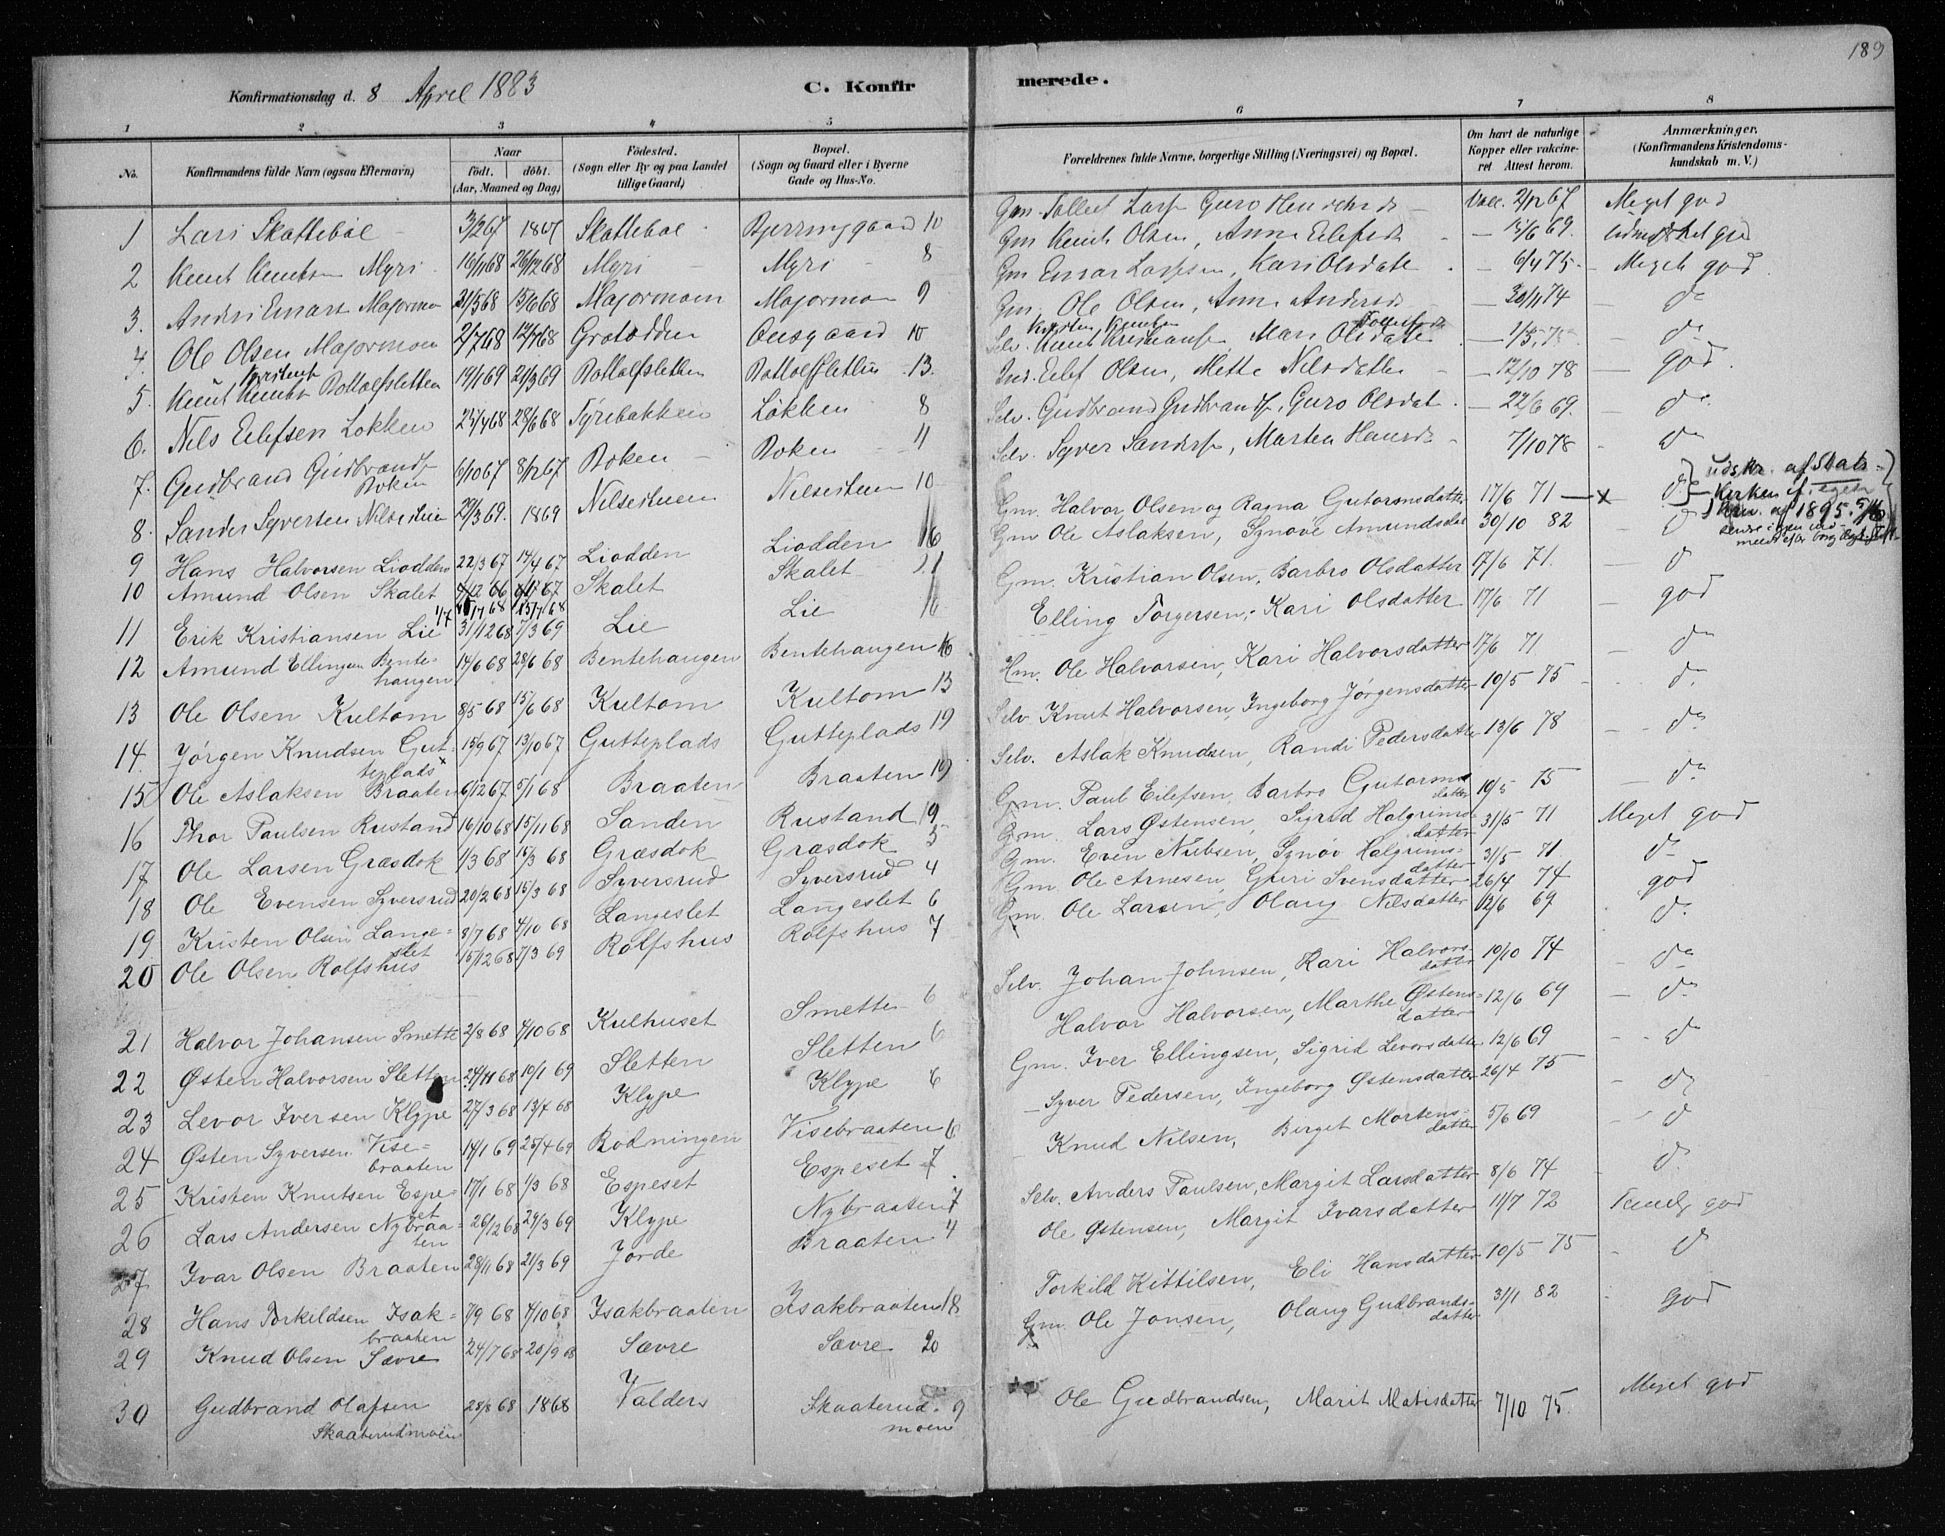 189
Konfirmationsdag d. 8 April 1883 C. Konfirmerede.
1 2 3 4 5 6 7 8
No. Konfirmandens fulde Navn (ogsaa Efternavn) Naar födt. döbt. (Aar, Maaned og Dag) Födested. (Sogn eller By og paa Landet tillige Gaard) Bopæl. (Sogn og Gaard eller i Byerne Gade og Hus-No. Forældrenes fulde Navne, borgerlige Stilling (Næringsvei) og Bopæl. Om havt de naturlige Kopper eller vakcineret Attest herom. Anmærkninger. (Konfirmandens Kristendomskundskab m. V.)
1 Lars Skattebøl 3/2 67 1867 Skattebøl 10 Gm. Guro Vacc. 2/12 67 Meget god
2 Knut Knutsen Myri 16/11 68 26/12 68 Myri Myri 8 Gm Knut Olsen, Anne Eilefsd — 15/6 69.
3. Majormoen 31/5 68 15/6 68 Majormoen Majormo 9 Gm Einar Larssen, Kari Olsdatt — 6/4 75 — Meget god.
4. Ole Olsen Majormoen 2/7 68 12/7 68 10 Gm. Ole Olsen, Anne Andersd — 30/11 74 — do
5. Knut 19/1 69 21/3 69 13. Selv. Mari — do
6. Nils Eilefsen Løkken 25/4 68 28/6 68 Tyribakken Løkken 8 Ind. Eilef Olsen, Mette Nilsdatter — 12/10 78 — god.
7. Gudbrand Gudbrands Roken 6/10 67 8/12 67 Roken Roken 11 Selv. Gudbrand Gudbrands, Guro Olsdat. — 22/6 69. — do
8. Sander Syversen Nilsestuen 29/3 69. 1869 Nilsestuen Nilsestuen 10 Selv. Syver Sanders, Marten 7/10 78 — do
9 Hans Halvorsen Liodden 22/3 67 14/4 67 Liodden Liodden 16 Gm. Halvor Olsen og Ragna Gutormsdatter 17/6 71 — x — do udskr. af Stats-
Kirken
af 1895.
10 Amund Olsen Skalet Skalet Skalet 21 Gm Ole Aslaksen, Synøve Amundsdat 30/10 82 — do
11 Erik Kristiansen Lie 31/12 68 7/3 69 Lie Lie 16 Gm. Kristian Olsen, Barbro Olsdatter 17/6 71. — do
12 Amund Ellingsen Bentehaugen 14/6 68 28/6 68 Bentehaugen Bentehaugen 16 Elling Torgersen, Kari Olsdatter 17/6 71 — god
13 Ole Olsen Kultom 8/5 68 15/6 68 Kultom Kultom 13 Hm. Ole Halvorsen, Kari Halvorsdatter 17/6 71 — do
14. Jørgen Knudsen Gutteplads 15/9 67 13/10 67 Gutteplads Gutteplads 19 Selv. Knut Halvorsen, Ingeborg Jørgensdatter 10/5 75 — do.
15 Ole Aslaksen Braaten 6/12 67 5/1 68 Braaten Braaten 19 Selv. Aslak Knudsen, Randi Pedersdatter 13/6 78 — do
16 Thor Paulsen Rustand 16/10 68 15/11 68 Sanden Rustand 19 Gm. Paul Eilefsen, Barbro Gutormsdatter 10/5 75 — do
17 Ole Larsen Græsdok 1/3 68 15/3 68 Græsdok Græsdok 5 Gm. Lars Østensen, Sigrid Halgrimsdatter 31/5 71 Meget god
18 Ole Evensen Syversrud 20/2 68 15/3 68 Syversrud Syversrud 4 Gm. Even Nubsen, Synøv Halgrimsdatter 31/5 71 do
19. Kristen Olsen Langeslet 8/7 68 4/10 68 Langeslet Langeslet 6 Gm. Ole Arnesen, Guri Svensdatter 26/4 74 god
20 Ole Olsen Rolfshus 15/12 68 7/3 69 Rolfshus Rolfshus 7 Gm. Ole Larsen, Olaug Nilsdatter 12/6 69 do.
21 Halvor Johansen Smette 2/8 68 4/10 68 Kulhuset Smetten 6 Selv. Johan Johnsen, Kari Halvorsdatter 10/10 74 — do
22 Østen Halvorsen Sletten 10/1 69 Sletten Sletten 6 Halvor Halvorsen, Marthe Østensdatter 12/6 69 — do
23 Levor Iversen Klype 27/3 68 13/4 68 Klype Klype 6 Gm. Iver Ellingsen, Sigrid Levorsdatter 12/6 69 — do
24 Østen Syversen Visebraaten 14/1 69 25/4 69 Rodningen Visebraaten 6 Syver Pedersen, Ingeborg Østensdatter 26/4 75 do
25 Kristen Knutsen Espeset 17/1 68 1/3 68 Espeset Espeset 7 Knud Nilsen, Birget Mortensdatter 5/6 69 — do
26 Lars Andersen Nybraaten 26/12 68 29/3 69 Klype Nybraaten 7 Selv. Anders Paulsen, Margit Larsdatter 8/6 74 — do.
27 Ivar Olsen Braaten 28/11 68 21/3 69 Jorde Braaten 4 Ole Østensen, Margit Ivarsdatter 11/7 72 Temlig god
28 Hans Torkildsen Isakbraaten 7/9 68 4/10 68 Isakbraaten Isakbraaten 18 Torkild Kittilsen, Eli Hansdatter 10/5 75 — do
29 Knud Olsen Sævre 24/7 68 20/9 68 Sævre Sævre 20 Gm. Ole Jonsen, Olaug Gudbrandsdatter 31/1 82 god
30 Gudbrand Olafsen Skaaterudmoen 28/8 68 1868 Valders Skaaterudmoen 9 Ole Gudbrandsen, Marit Matisdatter 7/10 75. Meget god